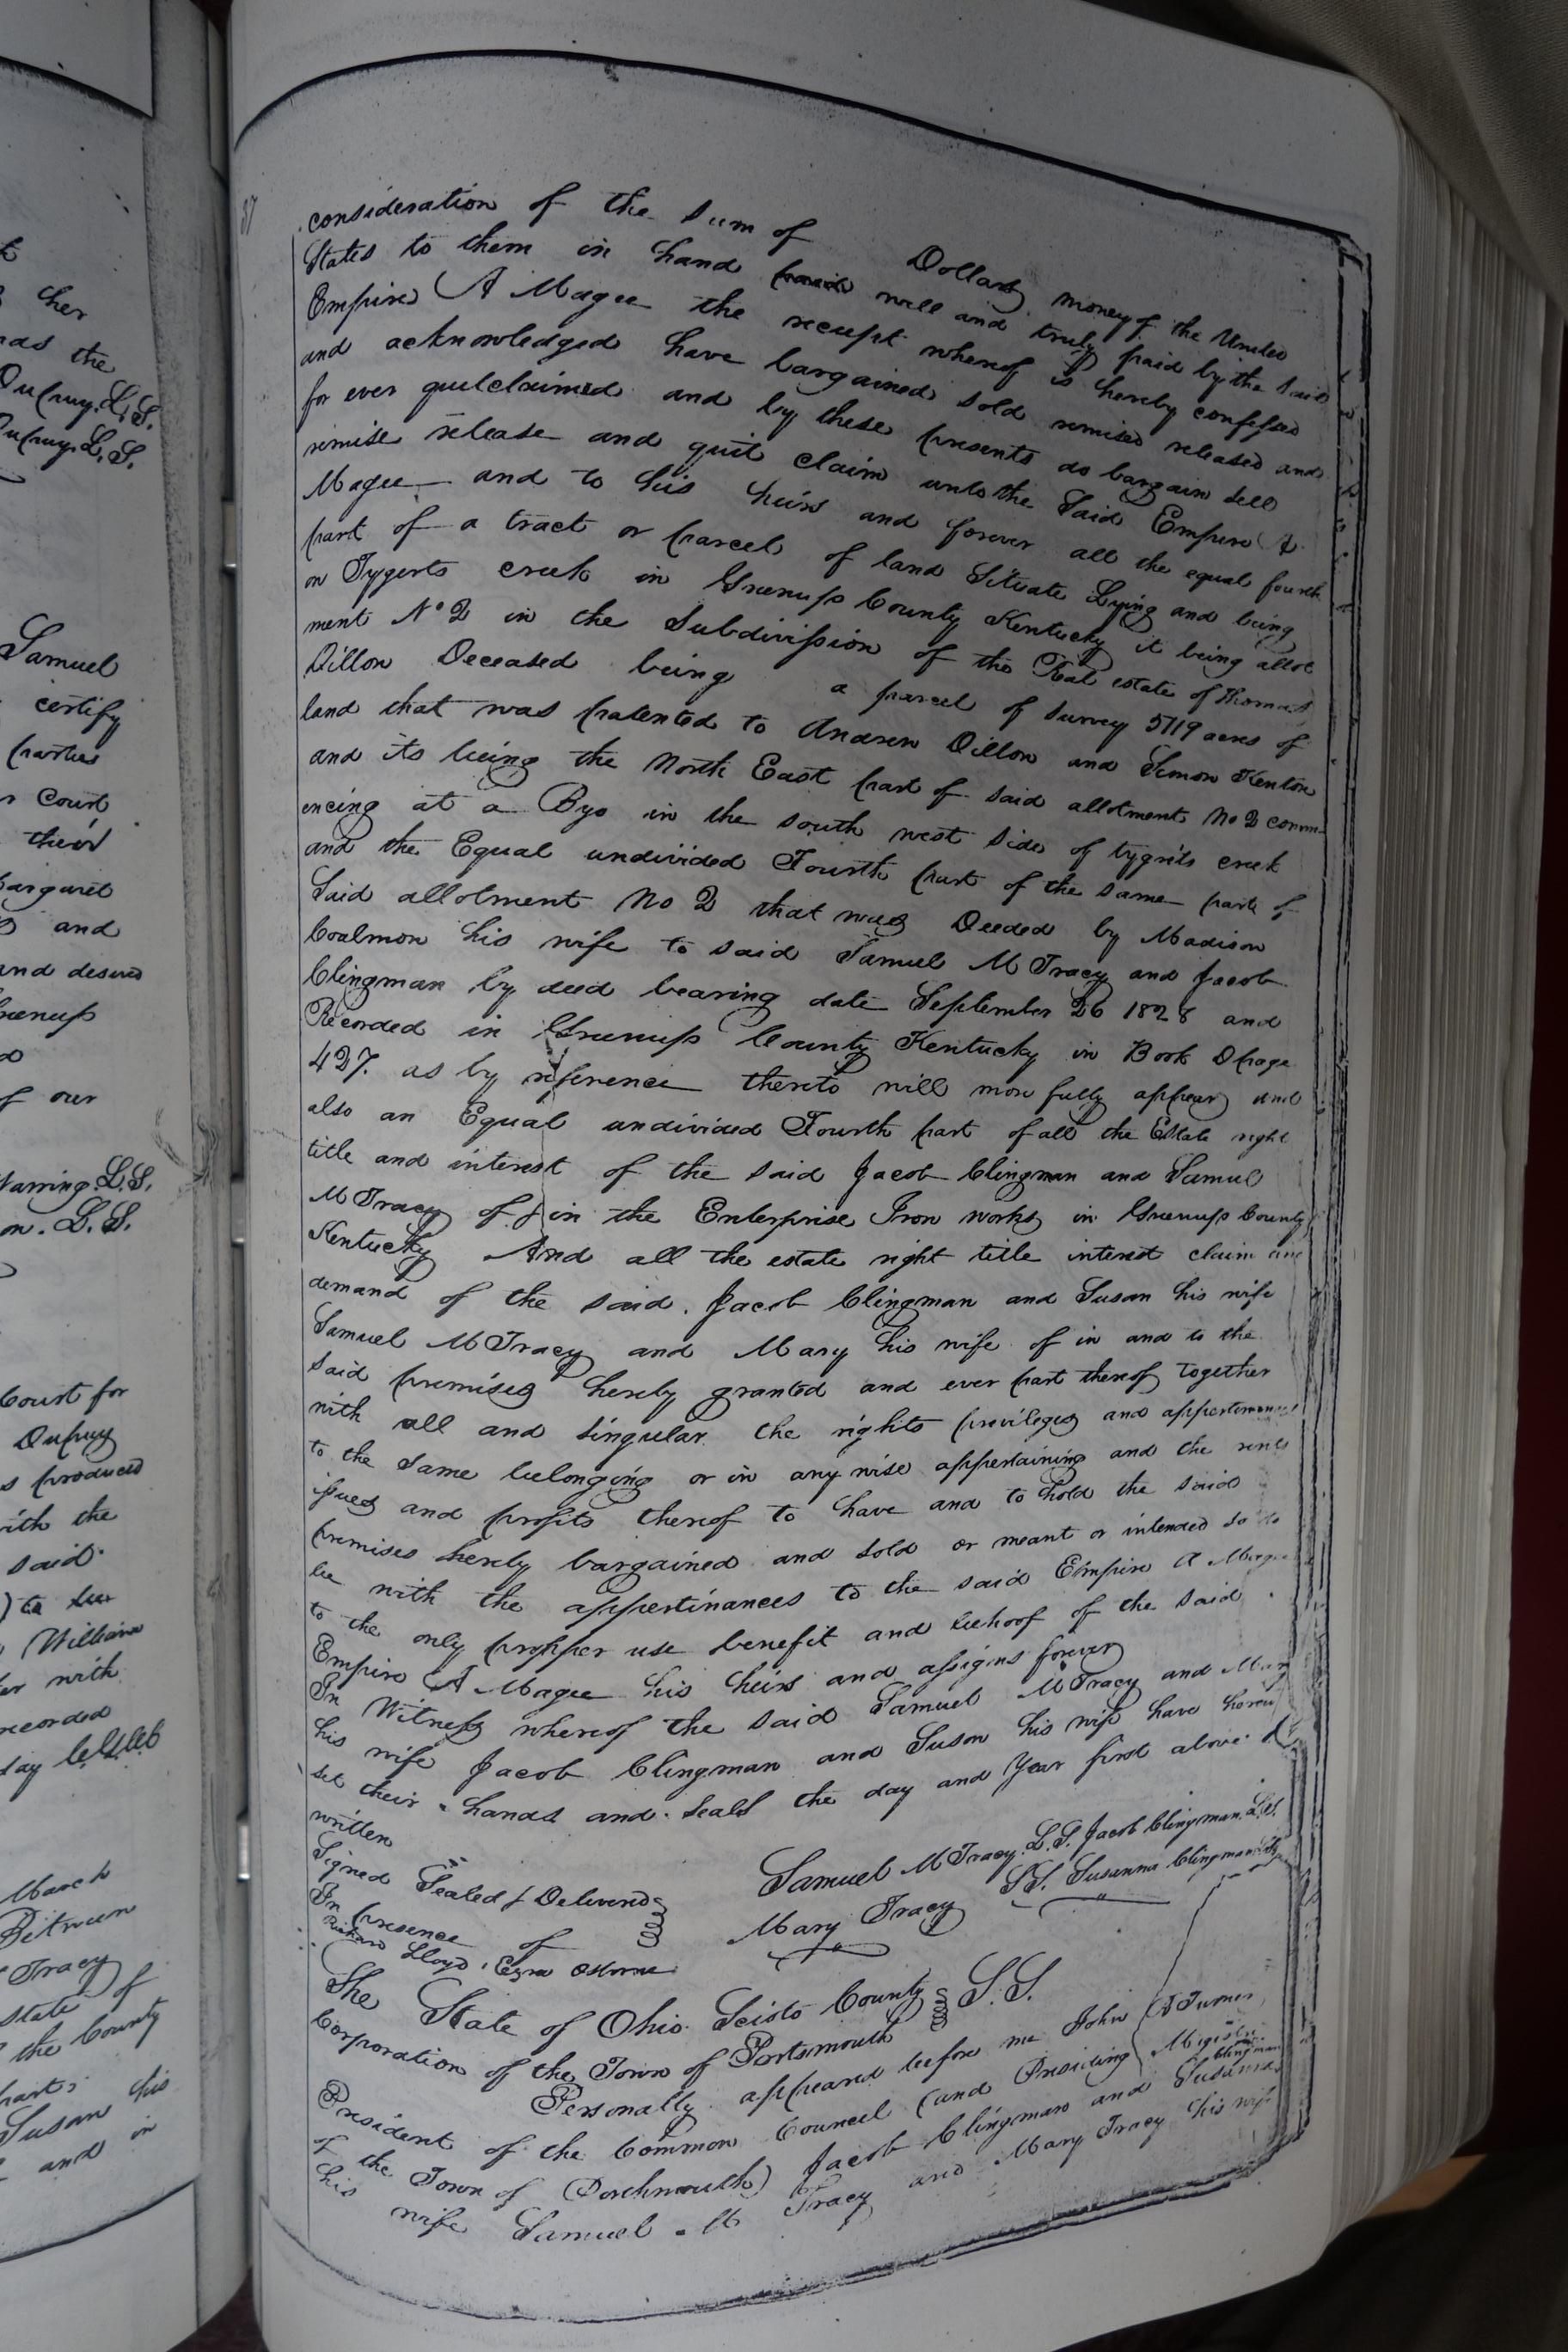 her
as the
Dupuy. L.S.
Dupuy. L.S.
Samuel
certify
parties
Court
their
argaret
and
and desires
reenup
of our
Warring. L.S.
on. L.S.
Court for
Dupuy
s produced
with the
said
) to be
William
er with
recorded
day
March
Between
Tracy
State of
the County
part
Susan his
and in
consideration of the Sum of Dollars money of the United
States to them in hand paid well and truly paid by the Said
Empire A Magee the receipt whereof is hereby confessed
and acknowledged have bargained sold remised released and
for ever quitclaimed and by these presents do bargain Sell
remise release and quit claim unto the Said Empire A
Magee and to his heirs and forever all the equal fourth
part of a tract or parcel of land Situate Lying and being
on Tygerts creek in Greenup County Kentucky it being allot
ment No 2 in the Subdivission of the Real estate of Thomas
Dillon Deceased being a parcel of Survey 5719 acres of
land that was patented to Andrew Dillon and Simon Kenton
and its being the North East part of said allotment No 2 comm
encing at a Byo in the south west Side of tygerts creek
and the Equal undivided Fourth part of the same part of
Said allotment No 2 that was Deeded by Madison
Coalmon his wife to said Samuel M Tracy and Jacob
Clingman by deed bearing date September 26 1828 and
Recorded in Greenup County Kentucky in Book D page
427. as by reference thereto will more fully appear and
also an Equal undivided Fourth part of all the Estate right
title and interest of the said Jacob Clingman and Samuel
M Tracy of & in the Enterprise Iron works in Greenup County
Kentucky And all the estate right title interest claim and
demand of the said. Jacob Clingman and Susan his wife
Samuel M Tracy and Mary his wife of in and to the
Said premises hereby granted and ever part thereof together
with all and singular the rights privileges and appertinances
to the same belonging or in any wise appertaining and the rents
issues and profits thereof to have and to hold the said
premises hereby bargained and sold or meant or intended so to
be with the appertinances to the said Empire A Magee
to the only propper use benefit and behoof of the said
Empire A Magee his heirs and assigns forever
In Witness whereof the said Samuel M Tracy and Mary
his wife Jacob Clingman and Suson his wife have hereu
set their hands and Seals the day and Year first above
written
Samuel M Tracy L.S. Jacob Clingman. L.S.
Signed Sealed & Delivered
Mary Tracy L.S. Susanna Clingman
In presence of
Richard Lloyd. Ezra Osborne
The State of Ohio Scioto County S.S.
Corporation of the Town of Portsmouth
Personally appeared before me John A Turner
President of the Common Council (and Presiding
of the Town of Porchmouth) Jacob Clingman and Susanna Clingman
his wife Samuel M Tracy and Mary Tracy his wife